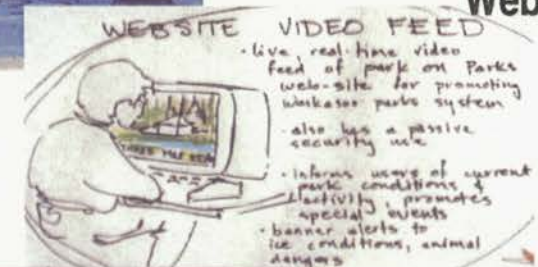 Web
WEBSITE VIDEO FEED
• live, real-time video
feed of park on Parks
web-site for promoting
Waskasoo parks system
• also has a passive
security use
• informs users of current
park conditions &
activity, promotes
special events
• banner alerts to
ice conditions, animal
dangers